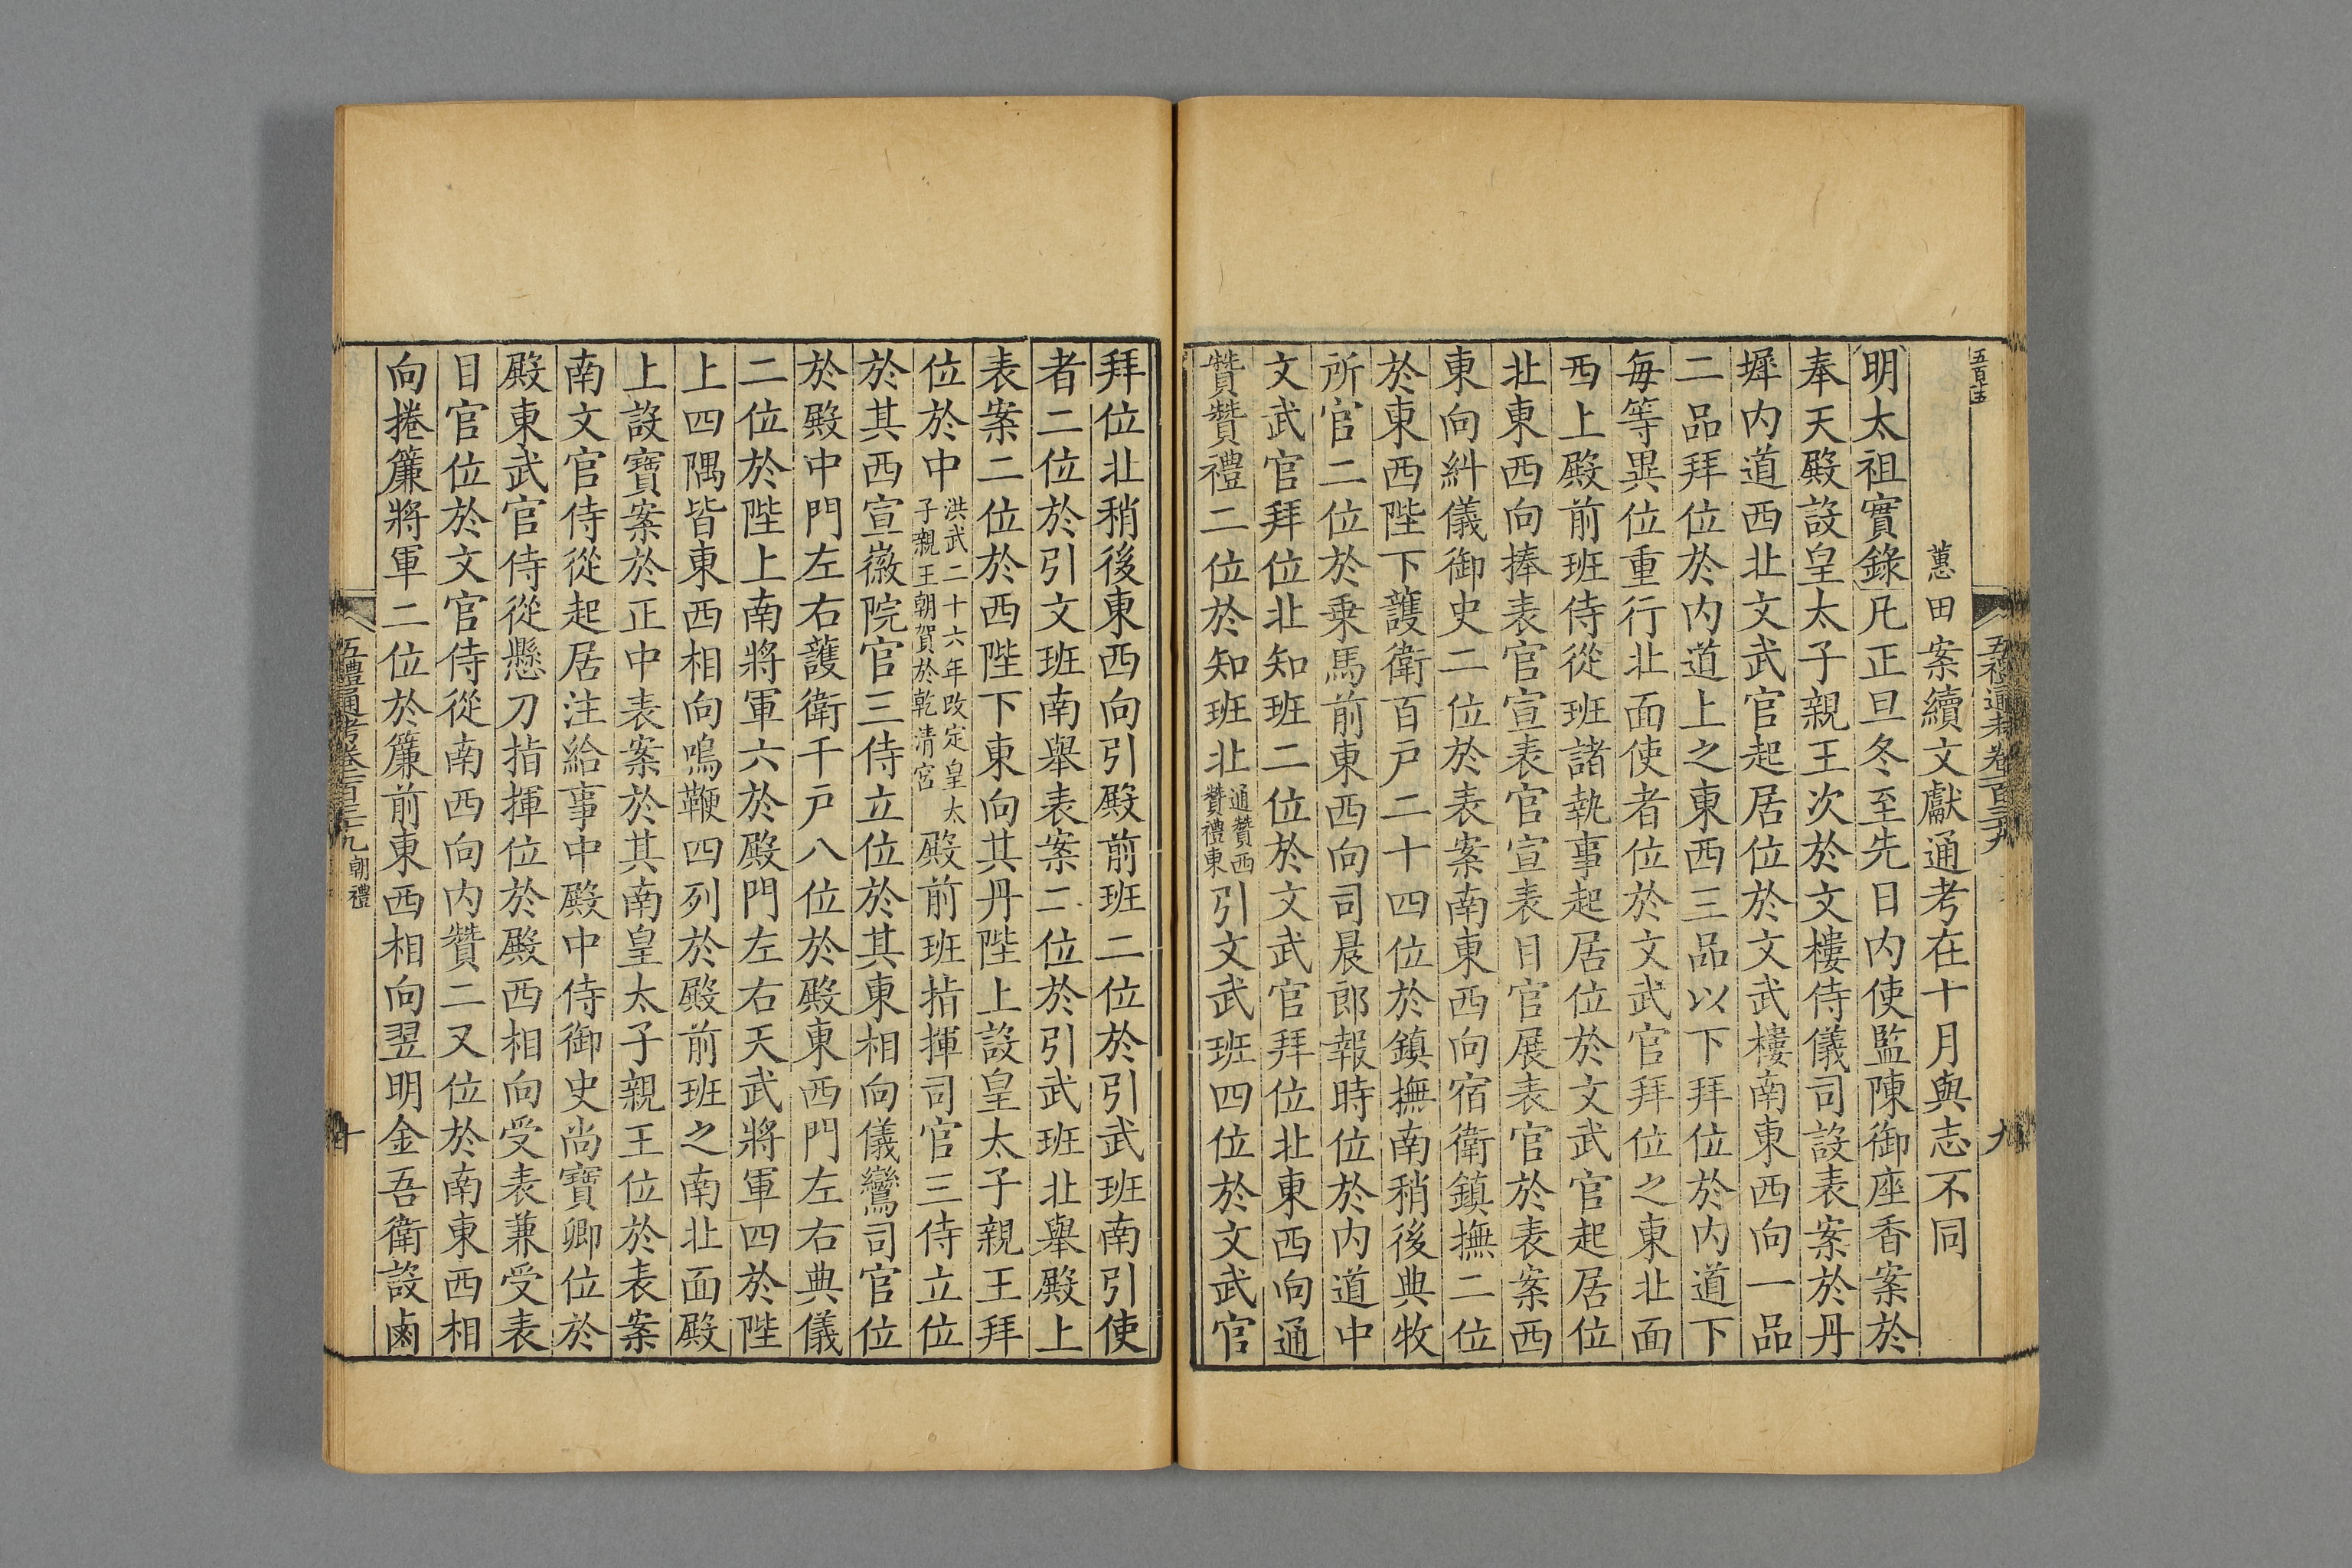 五百十五
五禮通考卷一百三十九
九
蕙田案續文獻通考在十月與志不同
明太祖實錄凡正旦冬至先日内使監陳御座香案於
奉天殿設皇太子親王次於文樓侍儀司設表案於丹
墀内道西北文武官起居位於文武樓南東西向一品
二品拜位於内道上之東西三品以下拜位於内道下
每等異位重行北面使者位於文武官拜位之東北面
西上殿前班侍從班諸執事起居位於文武官起居位
北東西向捧表官宣表官宣表目官展表官於表案西
東向糾儀御史二位於表案南東西向宿衛鎮撫二位
於東西陛下護衛百戸二十四位於鎮撫南稍後典牧
所官二位於乗馬前東西向司晨郎報時位於内道中
文武官拜位北知班二位於文武官拜位北東西向通
贊贊禮二位於知班北通贊西贊禮東引文武班四位於文武官
拜位北稍後東西向引殿前班二位於引武班南引使
者二位於引文班南舉表案二位於引武班北舉殿上
表案二位於西陛下東向其丹陛上設皇太子親王拜
位於中洪武二十六年改定皇太子親王朝賀於乾清宮殿前班指揮司官三侍立位
於其西宣徽院官三侍立位於其東相向儀鸞司官位
於殿中門左右護衛千戸八位於殿東西門左右典儀
二位於陛上南將軍六於殿門左右天武將軍四於陛
上四隅皆東西相向鳴鞭四列於殿前班之南北面殿
上設寶案於正中表案於其南皇太子親王位於表案
南文官侍從起居注給事中殿中侍御史尚寶卿位於
殿東武官侍從懸刀指揮位於殿西相向受表兼受表
目官位於文官侍從南西向内贊二又位於南東西相
向捲簾將軍二位於簾前東西相向翌明金吾衛設鹵
五禮通考卷一百三十九 朝禮
十